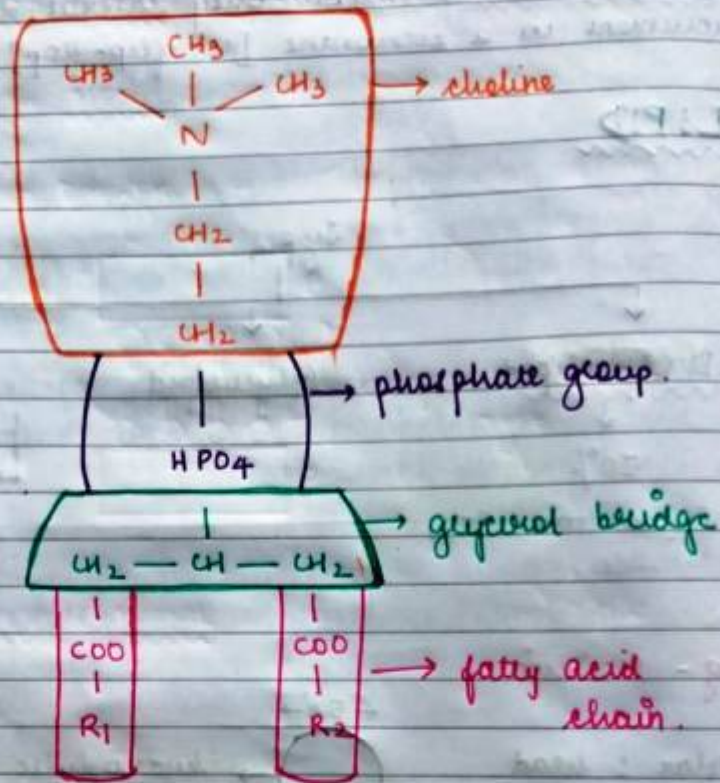 CH3
CH3 CH3 → choline
N
CH2
CH2
→ phosphate group.
HPO4
→ glycerol bridge
CH2 — CH — CH2
COO COO
→ fatty acid
chain.
R1 R2